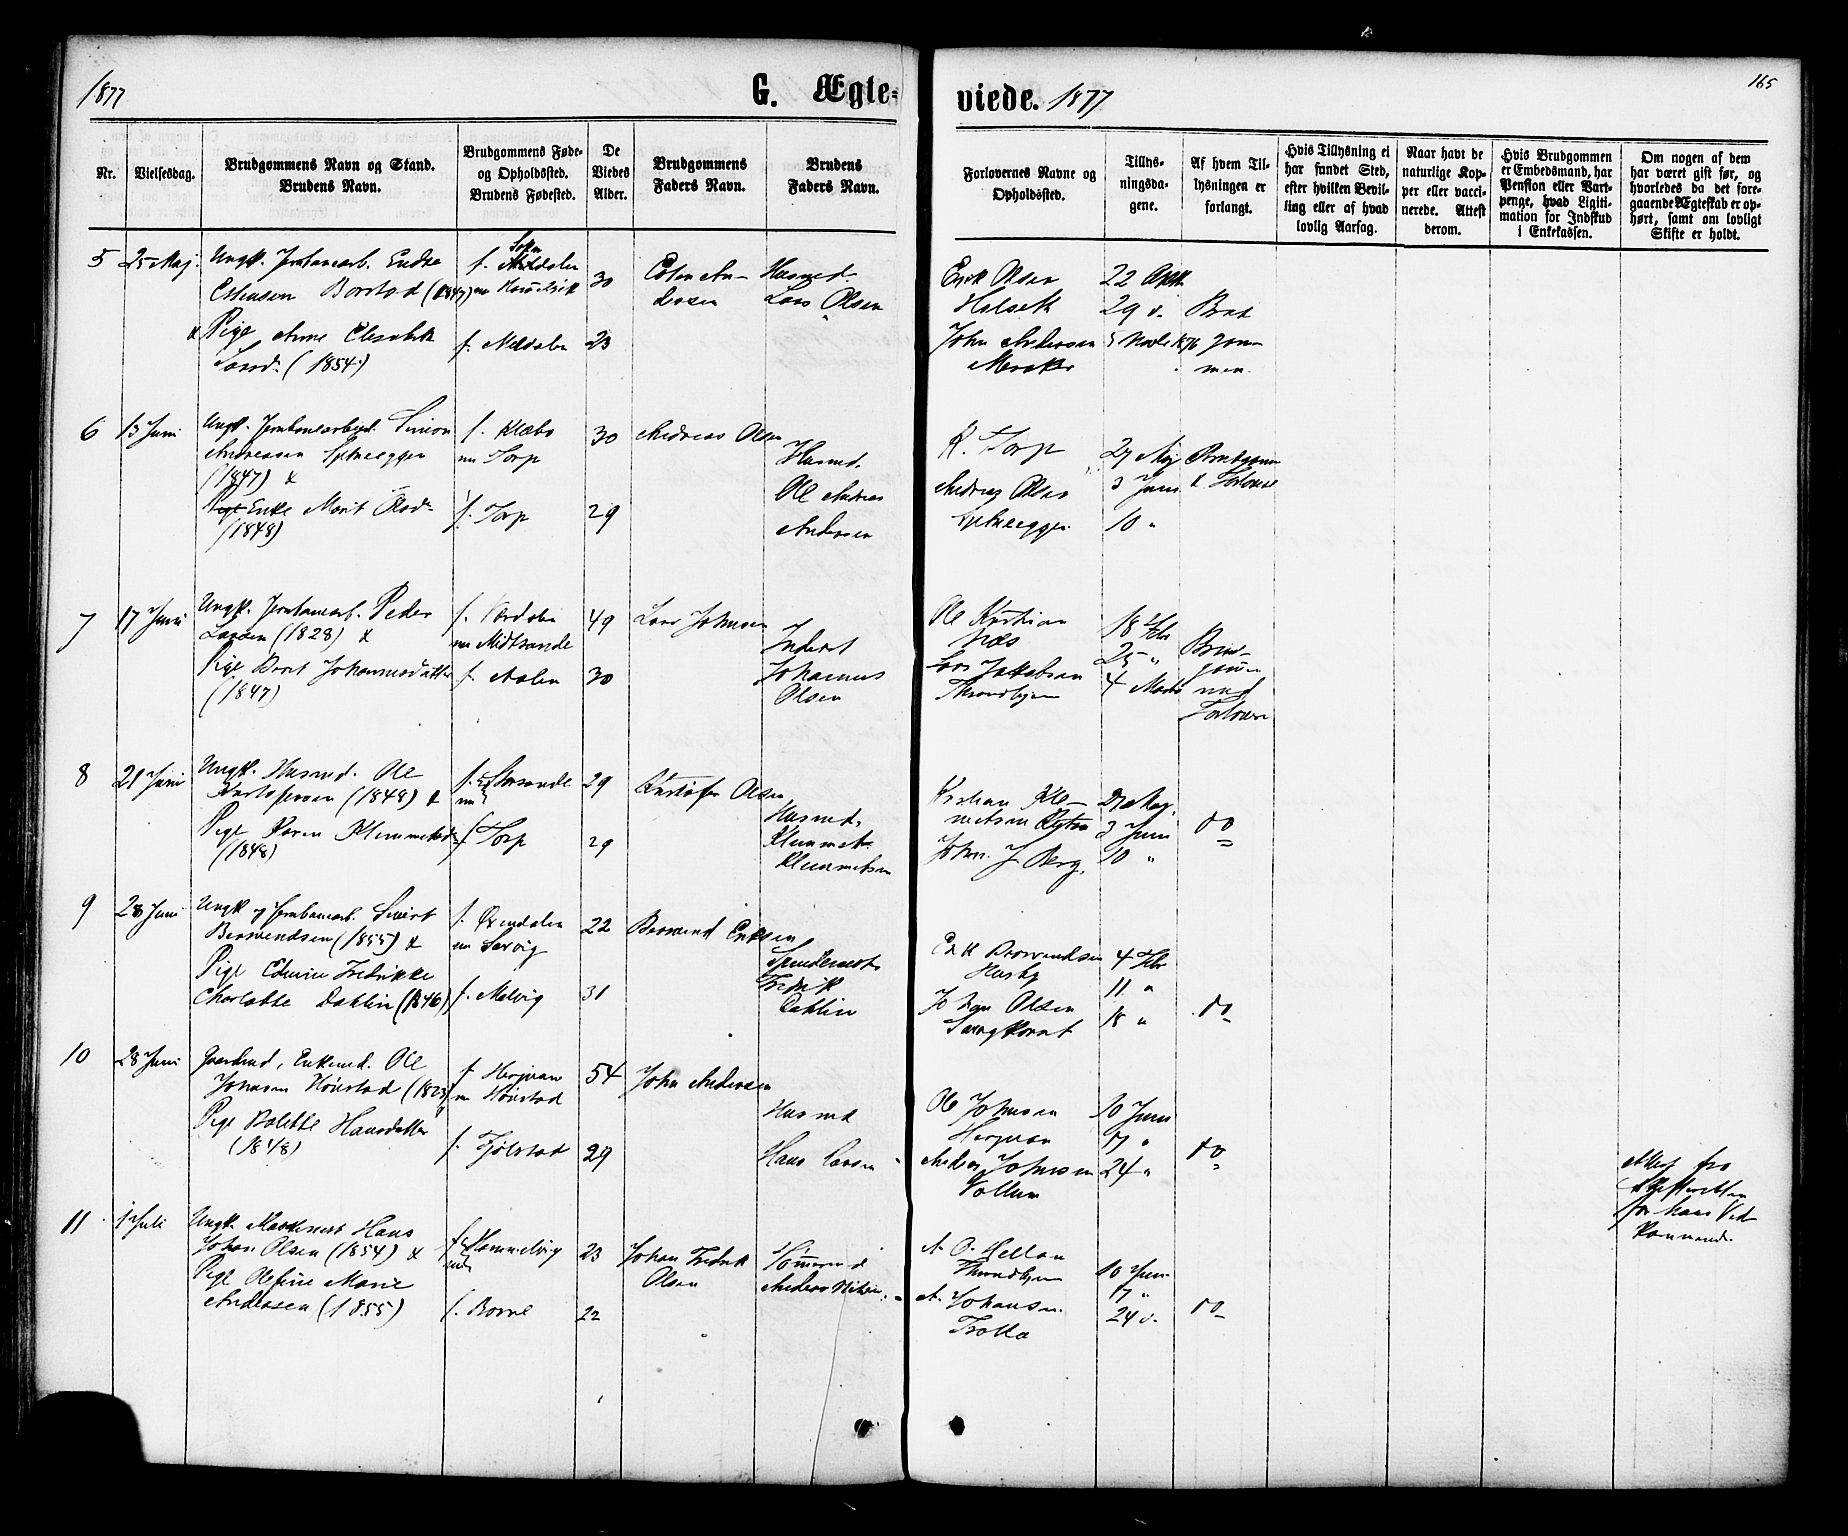 1877
G. Ægte-
viede. 1877
165
Nr.
Vielsesdag.
Brudgommens Navn og Stand.
Brudens Navn.
Brudgommens Føde-
og Opholdsted.
Brudens Fødested.
De
Viedes
Alder.
Brudgommens
Faders Navn.
Brudens
Faders Navn.
Forlovernes Navne og
Opholdssted.
Tillys-
ningsda-
gene.
Af hvem Til-
lysningen er
forlangt.
Hvis Tillysning ei
har fundet Sted,
efter hvilken Bevil-
ling eller af hvad
lovlig Aarsag.
Naar havt de
naturlige Kop-
per eller vacci-
nerede. Attest
derom.
Hvis Brudgommen
er Embedsmand, har
Pension eller Vart-
penge, hvad Ligiti-
mation for Indskud
i Enkekassen.
Om nogen af dem
har været gift før, og
hvorledes da det fore-
gaaende Ægteskab er op-
hørt, samt om lovligt
Skifte er holdt.
5 25 Maj
Ungk. Jernbanearb. Endre
Estensen Borstad (1847)
& Pige Anne Elisabeth
Larsd. (1854)
f. Meldalen
f. Meldalen
30
23
Esten An-
dersen
Husmd.
Lars Olsen
Erik Olsen
John Andersen
Meraker
22
29
5 1876
6 13 Juni
Ungk. Jernbanearbeid. Simon
Andreassen
(1847) &
Enke Marit Olsd.
(1848)
f. Klæbo
nu Torp
f. Torp
30
29
Andreas Olsen
Husmd.
Ole Andreas
Andersen
K. Torp
Andreas Olsen
27 Maj
3 Juni
10 "
Brudgom
& Forlovere
7 17 Juni
Ungk. Jernbanearb. Peder
Larsen (1828) &
Pige Berit Johannesdatter
(1847)
f. Værdalen
nu Midtsande
f. Aalen
49
30
Lars Johnsen
Inderst
Johannes
Olsen
Ole Kristian
Næs
Lars Jakobsen
Throndhjem
18 Febr
25 "
4 Marts
Brud-
gom
med
Forlovere
8 21 Juni
Ungk. Husmd. Ole
Kristofersen (1848) &
Pige Karen Klemmetsd.
(1848)
f. & nu Storsande
f. Torp
29
29
Kristofer Olsen
Husmd.
Klemmet
Klemmetsen
Kristian Kle-
metsen
John J Berg.
27 Maj
3 Juni
10 "
do
9 28 Juni
Ungk og Jernbanearb. Sivert
Bersvendsen (1855) &
Pige Edvine Fredrikke
Charlotte Dahlin (1846)
f. Meldalen
nu Sarvig
f. Malvig
22
31
Bersvend Eriksen
Fredrik
Dahlin
Erik Bersvendsen
Husby
Johan Olsen
4 Febr
11 "
18 "
do
10 28 Juni
Gaardmd, Enkemd. Ole
Johnsen Hønstad (1823)
& Pige Bolette Hansdatter
(1848)
f. Herjuan
nu Hønstad
f. Fjølstad
54
29
John Andersen
Husmd
Hans Larsen
Ole Johnsen
Herjuan
Anders Johnsen
Vollum
10 Juni
17 "
24 "
do
Attest fra
Skifteretten
for hans Ved-
kommende
11 1 Juli
Ungk. Maskinist Hans
Johan Olsen (1854) &
Pige Olefine Marie
Andersen (1855)
f. & nu Hommelvig
f. Borse
23
22
Johan Fredrik
Olsen
Tømmermd
Andreas
A. O. Hellan
Throndhjem
A. Johansen
Trolla
10 Juni
17 "
24 "
do